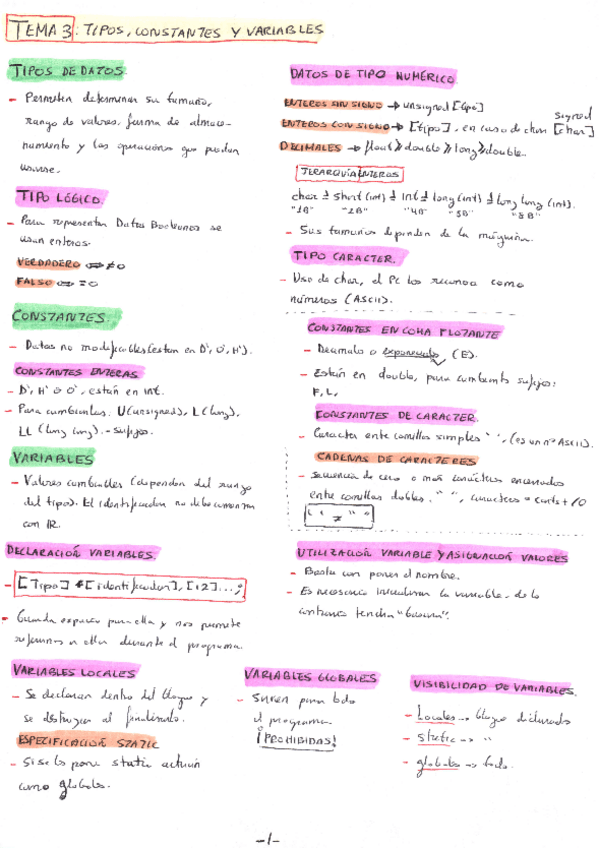 TEMA 3: TIPOS, CONSTANTES Y VARIABLES
TIPOS DE DATOS.
- Permiten determinar su tamaño,
rango de valores, forma de almace-
namiento y las operaciones que puedan
usarse.
TIPO LÓGICO.
- Para representar Datos Booleanos se
usan enteros.
VERDADERO ⇔ ≠0
FALSO ⇔ =0
DATOS DE TIPO NUMÉRICO
ENTEROS SIN SIGNO → unsigned [tipo]
ENTEROS CON SIGNO → [tipo], en caso de char signed [char]
DECIMALES → float » double » long » double.
JERARQUÍA ENTEROS
char ≤ short (int) ≤ int ≤ long (int) ≤ long long (int).
"1B" "2B" "4B" "8B" "8B"
- Sus tamaños dependen de la máquina.
TIPO CARACTER.
- Uso de char, el Pc los reconoce como
números (ASCII).
CONSTANTES.
- Datos no modificables (están en D', O', H').
CONSTANTES ENTERAS.
- D', H' o O', están en int.
- Para cambiarlas: U (unsigned), L (long),
LL (long long). - sufijos.
CONSTANTES EN COMA FLOTANTE
- Decimal o exponencial (E).
- Están en double, para cambiarlo sufijos:
F, L,
CONSTANTES DE CARACTER.
- Caracter entre comillas simples ' ', (es un nº ASCII).
CADENAS DE CARACTERES
- secuencia de cero o más caracteres encerrados
entre comillas dobles. " ",
' ' ≠ " "
VARIABLES
- Valores cambiables (dependen del rango
del tipo). El identificador no debe comenzar
con
DECLARACIÓN VARIABLES.
- [Tipo] [identificador], [i2]...;
- Guarda espacio para ella y nos permite
referirnos a ella durante el programa.
UTILIZACIÓN VARIABLE Y ASIGNACIÓN VALORES
- Basta con poner el nombre.
- Es necesario inicializar la variable, de lo
contrario tendrá "basura".
VARIABLES LOCALES
- Se declaran dentro del bloque y
se destruyen al finalizarlo.
ESPECIFICACIÓN STATIC
- Si se les pone static actúan
como globales.
VARIABLES GLOBALES
- Sirven para todo
el programa.
¡PROHIBIDAS!
VISIBILIDAD DE VARIABLES.
- Locales → bloque declarado
- Static → "
- globales → todo.
-1-